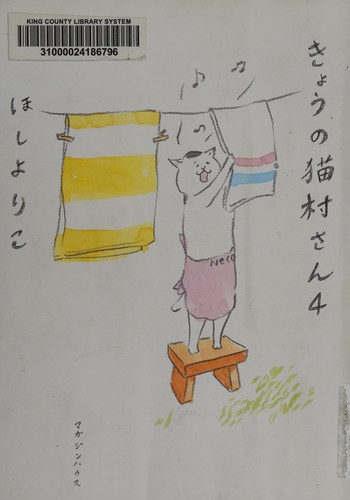 KING COUNTY LIBRARY SYSTEM
31000024186796
きょうの猫村さん4
ほしよりこ
Neco
マガジンハウス